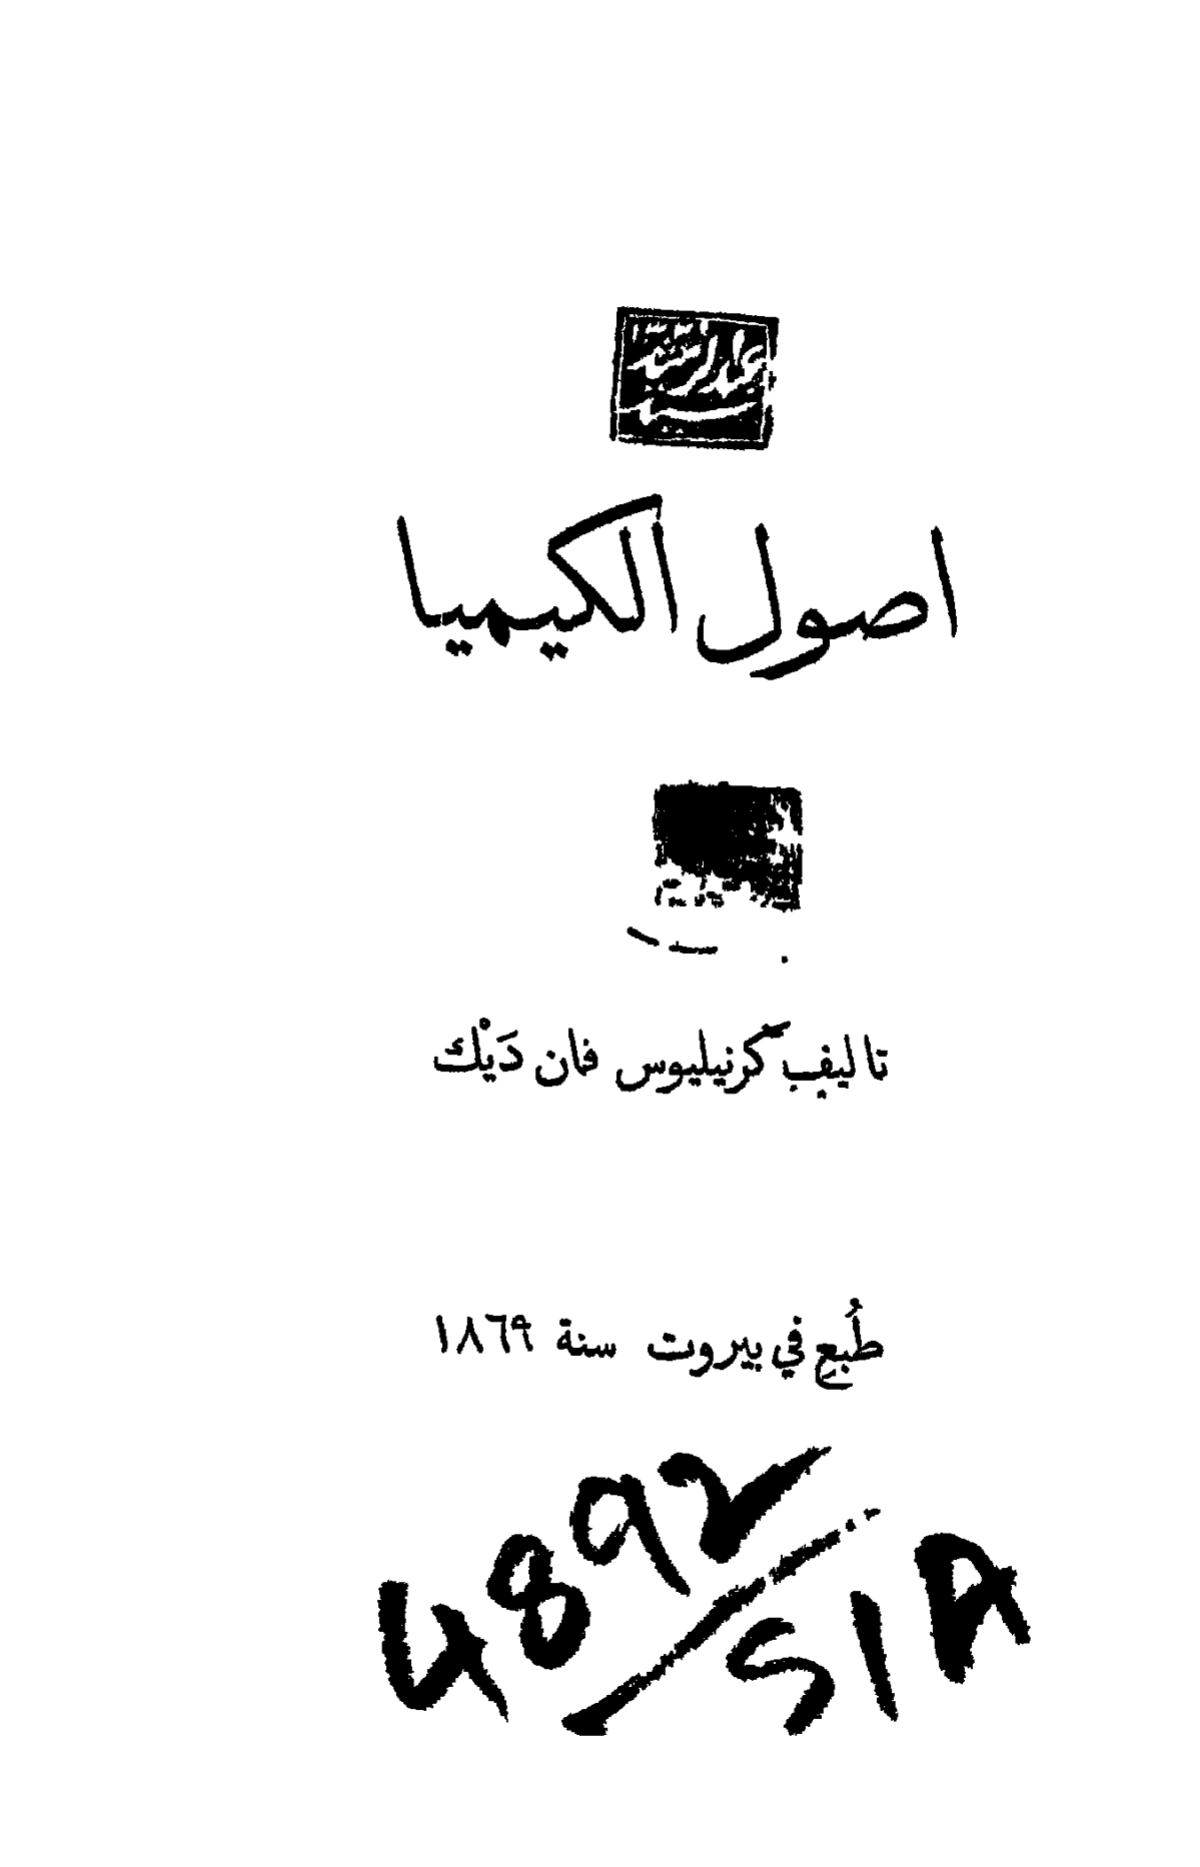 اصول الكيميا
تاليف كرنيليوس فان دَيْك
طُبع في بيروت سنة ١٨٦٩
4892/51A